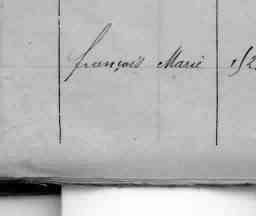 françois Marie